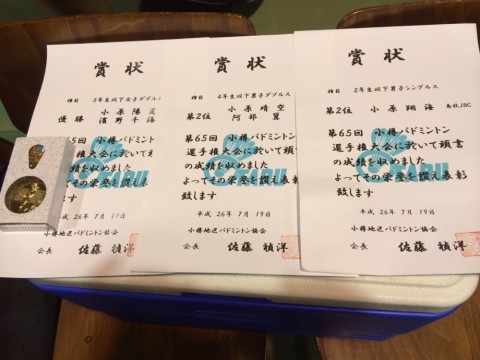 賞状
種目 3年生以下女子ダブルス
小原陽
優勝 濱野千海
第65回 小樽バドミントン
選手権大会に於いて頭
の成績を収めました
よってその栄誉を讃え表
致します
平成 26年 7月 19日
小樽地区バドミントン協会
会長 佐藤 禎洋
賞状
種目 4年生以下男子ダブルス
小原晴空
第2位 阿部翼
第65回 小樽バドミントン
選手権大会に於いて頭書
の成績を収めました
よってその栄誉を讃え表
致します
平成 26年 7月 19日
小樽地区バドミントン協会
会長 佐藤 禎洋
賞状
種目 2年生以下男子シングルス
第2位 小原翔海 JSC
第65回 小樽バドミントン
選手権大会に於いて頭書
の成績を収めました
よってその栄誉を讃え表彰
致します
平成 26年 7月 19日
小樽地区バドミントン協会
会長 佐藤 禎洋